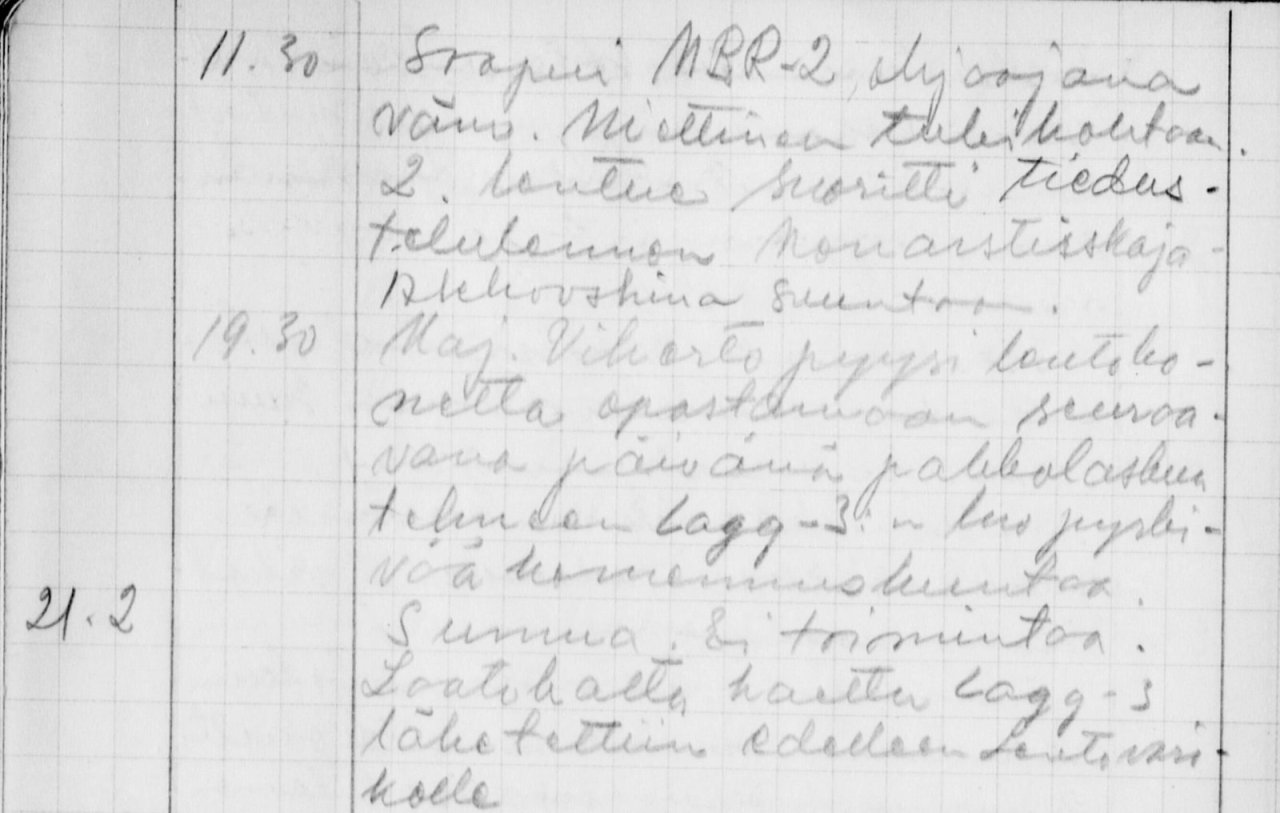 11.30 Saapui MBR-2, ohjaajana
vänr. Miettinen tulikohtaan.
2. lentue suoritti tiedus-
telulennon Monarstisskaja-
Akhovshina suuntaan.
19.30 Maj. Viherto pyysi lentoko-
netta opastamaan seuraa-
vana päivänä pakkolaskun
tehneen Lagg-3:n luo pyrki-
vää komennuskuntaa.
21.2 Sumua. Ei toimintaa.
Laatokalta haettu Lagg-3
lähetettiin edelleen Lentovari-
kolle